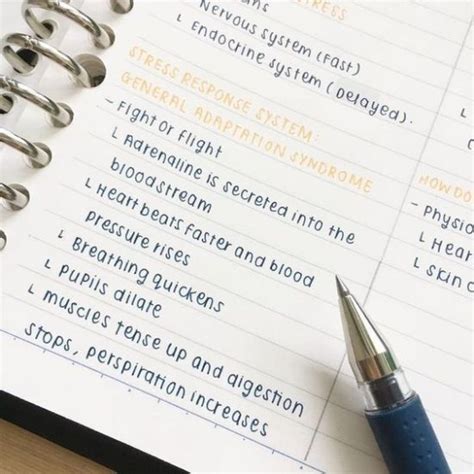 STRESS
Nervous system (fast)
L Endocrine system (Delayed).
STRESS RESPONSE SYSTEM:
GENERAL ADAPTATION SYNDROME
- Fight or flight
L Adrenaline is secreted into the
bloodstream
L Heart beats faster and blood
pressure rises
L Breathing quickens
L Pupils dilate
L muscles tense up and digestion
stops, perspiration increases
HOW DO
- Physio
L Hear
L skin c